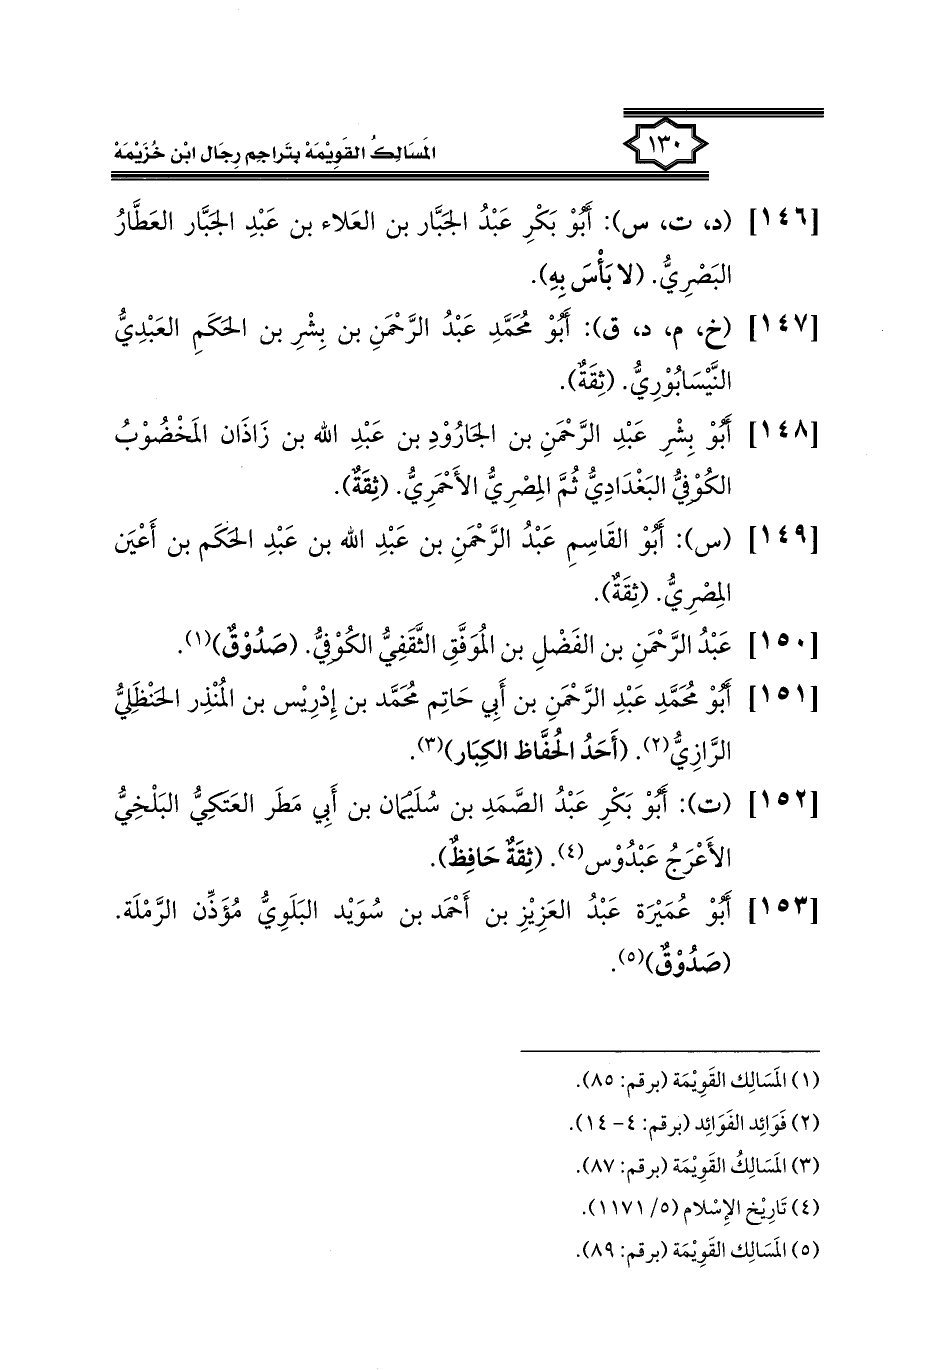 ١٣٠
المَسَالِكُ القَوِيْمَهْ بتَرَاجِمِ رِجَال ابْن خُزَيْمَهْ
[١٤٦] (د، ت، س): أَبُوْ بَكْرٍ عَبْدُ الجَبَّار بن العَلاء بن عَبْدِ الجَبَّار العَطَّارُ
البَصْرِيُّ. (لا بَأْسَ بِهِ).
[١٤٧] (خ، م، د، ق): أَبُوْ مُحَمَّدٍ عَبْدُ الرَّحْمَنِ بن بِشْرِ بن الحَكَمِ العَبْدِيُّ
النَّيْسَابُوْرِيُّ. (ثِقَةٌ).
[١٤٨] أَبُوْ بِشْرٍ عَبْدِ الرَّحْمَنِ بن الجَارُوْدِ بن عَبْدِ الله بن زَاذَان المَخْضُوْبُ
الكُوْفِيُّ البَغْدَادِيُّ ثُمَّ المِصْرِيُّ الأَحْمَرِيُّ. (ثِقَةٌ).
[١٤٩] (س): أَبُوْ القَاسِمِ عَبْدُ الرَّحْمَنِ بن عَبْدِ الله بن عَبْدِ الحَكَم بن أَعْيَن
المِصْرِيُّ. (ثِقَةٌ).
[١٥٠] عَبْدُ الرَّحْمَنِ بن الفَضْلِ بن المُوَفَّقِ الثَّقَفِيُّ الكُوْفِيُّ. (صَدُوْقٌ)(١).
[١٥١] أَبُوْ مُحَمَّدٍ عَبْدِ الرَّحْمَنِ بن أَبي حَاتِم مُحَمَّد بن إِدْرِيْس بن المُنْذِر الحَنْظَلِيُّ
الرَّازِيُّ(٢). (أَحَدُ الحُفَّاظ الكِبَار)(٣).
[١٥٢] (ت): أَبُوْ بَكْرٍ عَبْدُ الصَّمَدِ بن سُلَيْمَان بن أَبي مَطَر العَتكِيُّ البَلْخِيُّ
الأَعْرَجُ عَبْدُوْس(٤). (ثِقَةٌ حَافِظٌ).
[١٥٣] أَبُوْ عُمَيْرَة عَبْدُ العَزِيْزِ بن أَحْمَد بن سُوَيْد البَلَوِيُّ مُؤَذِّن الرَّمْلَة.
(صَدُوْقٌ)(٥).
(١) المَسَالِك القَوِيْمَة (برقم: ٨٥).
(٢) فَوَائِد الفَوَائِد (برقم: ٤-١٤).
(٣) المَسَالِكُ القَوِيْمَة (برقم: ٨٧).
(٤) تَارِيْخ الإِسْلام (٥/ ١١٧١).
(٥) المَسَالِك القَوِيْمَة (برقم: ٨٩).